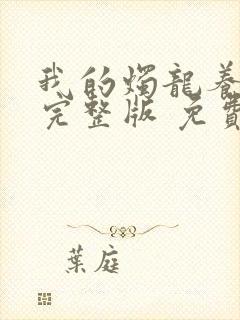 我的燭龍養
完整版 免費
葉庭